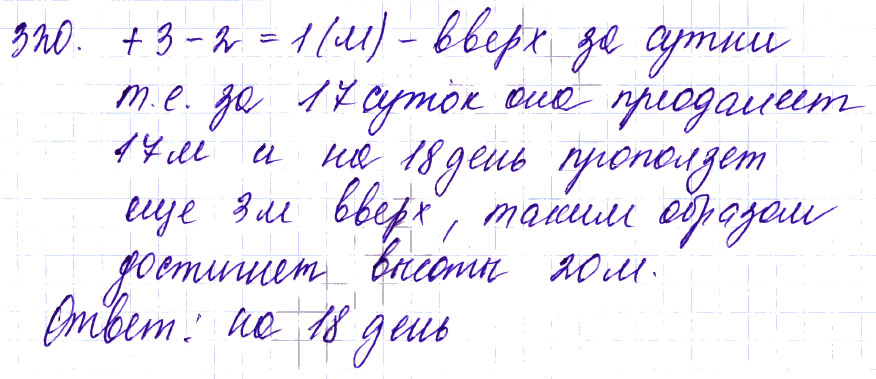 320. +3-2=1(м) - вверх за сутки
т.е. за 17 суток она преодалеет
17м и на 18 день проползет
еще 3м вверх, таким образом
достигнет высоты 20м.
Ответ: на 18 день